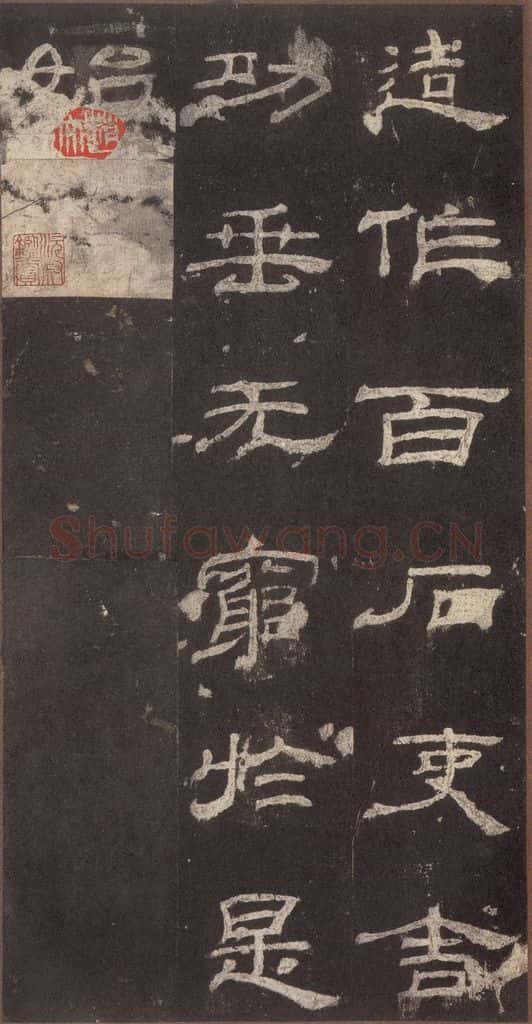 造作百石吏舍
功垂无窮於是
始
Shufawang.CN